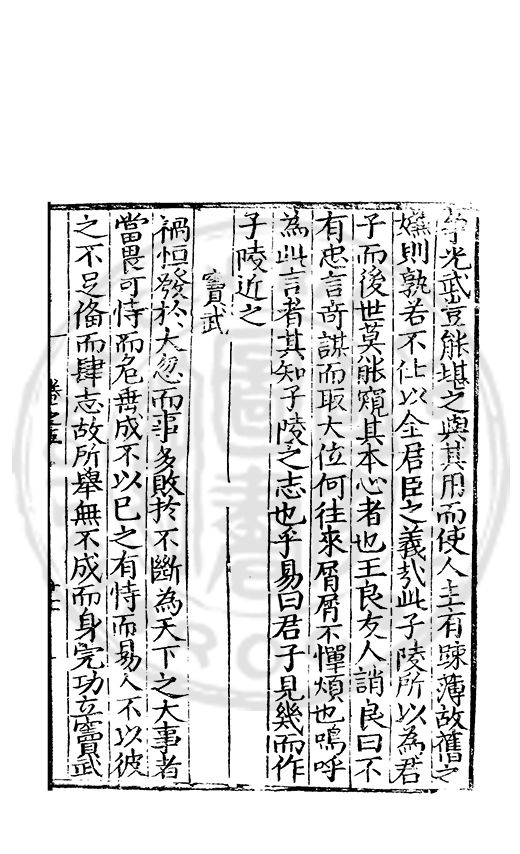 光武豈能堪之與其用而使人主有疎薄故舊之
嫌則孰若不仕以全君臣之義哉此子陵所以為君
子而後世莫能窺其本心者也王良友人誚良曰不
有忠言奇謀而取大位何往來屑屑不憚煩也嗚呼
為此言者其知子陵之志也乎易曰君子見幾而作
子陵近之
竇武
禍恒發於大忽而事多敗於不斷為天下之大事者
當畏可恃而危無成不以已之有恃而易人不以彼
之不足俻而肆志故所舉無不成而身完功立竇武
卷之五